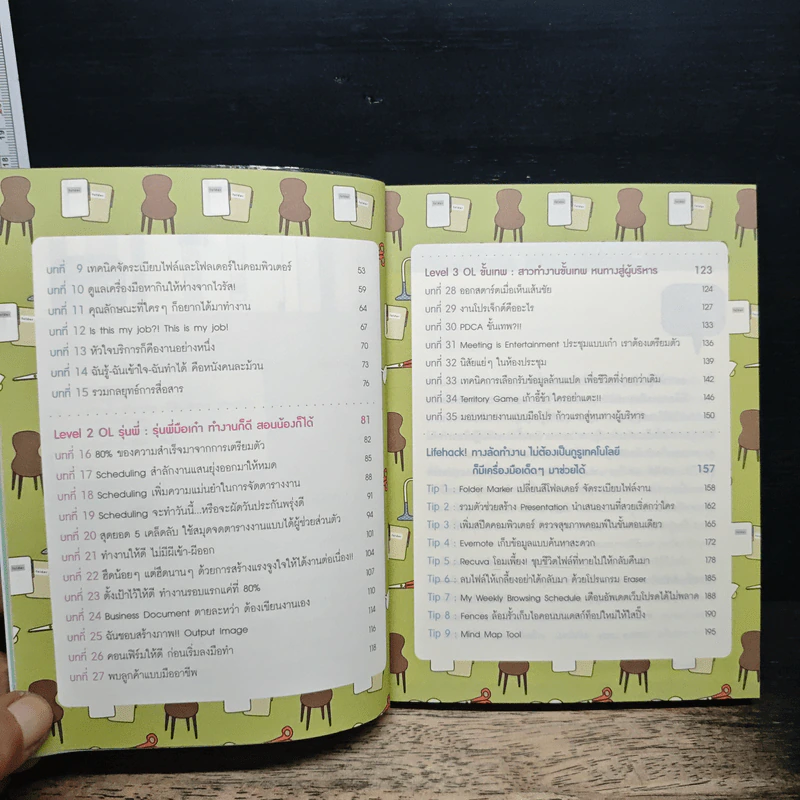 บทที่ 9 เทคนิคจัดระเบียบไฟล์และโฟลเดอร์ในคอมพิวเตอร์ 53
บทที่ 10 ดูแลเครื่องมือหากินให้ห่างจากไวรัส! 59
บทที่ 11 คุณลักษณะที่ใครๆ ก็อยากได้มาทำงาน 64
บทที่ 12 Is this my job?! This is my job! 67
บทที่ 13 หัวใจบริการก็คืองานอย่างหนึ่ง 70
บทที่ 14 ฉันรู้-ฉันเข้าใจ-ฉันทำได้ คือหนังคนละม้วน 73
บทที่ 15 รวมกลยุทธ์การสื่อสาร 76
Level 2 OL รุ่นพี่ : รุ่นพี่มือเก๋า ทำงานก็ดี สอนน้องก็ได้ 81
บทที่ 16 80% ของความสำเร็จมาจากการเตรียมตัว 82
บทที่ 17 Scheduling สำลักงานแสนยุ่งออกมาให้หมด 85
บทที่ 18 Scheduling เพิ่มความแม่นยำในการจัดตารางงาน 88
บทที่ 19 Scheduling จะทำวันนี้...หรือจะผัดวันประกันพรุ่งดี 91
บทที่ 20 สุดยอด 5 เคล็ดลับ ใช้สมุดจดตารางงานแบบได้ผู้ช่วยส่วนตัว 94
บทที่ 21 ทำงานให้ดี ไม่มีผีเข้า-ผีออก 101
บทที่ 22 ฮึดน้อยๆ แต่ฮึดนานๆ ด้วยการสร้างแรงจูงใจให้ได้งานต่อเนื่อง!! 104
บทที่ 23 ตั้งเป้าไว้ให้ดี ทำงานรอบแรกแค่ที่ 80% 107
บทที่ 24 Business Document ตายละหว่า ต้องเขียนงานเอง 110
บทที่ 25 ฉันชอบสร้างภาพ!! Output Image 114
บทที่ 26 คอนเฟิร์มให้ดี ก่อนเริ่มลงมือทำ 116
บทที่ 27 พบลูกค้าแบบมืออาชีพ 118
Level 3 OL ชั้นเทพ : สาวทำงานชั้นเทพ หนทางสู่ผู้บริหาร 123
บทที่ 28 ออกสตาร์ตเมื่อเห็นเส้นชัย 124
บทที่ 29 งานโปรเจ็กต์คืออะไร 127
บทที่ 30 PDCA ขั้นเทพ?!! 133
บทที่ 31 Meeting is Entertainment ประชุมแบบเก๋า เราต้องเตรียมตัว 136
บทที่ 32 นิสัยแย่ๆ ในห้องประชุม 139
บทที่ 33 เทคนิคการเลือกรับข้อมูลล้านแปด เพื่อชีวิตที่ง่ายกว่าเดิม 142
บทที่ 34 Territory Game เก้าอี้ข้า ใครอย่าแตะ!! 146
บทที่ 35 มอบหมายงานแบบมือโปร ก้าวแรกสู่หนทางผู้บริหาร 150
Lifehack! ทางลัดทำงาน ไม่ต้องเป็นกูรูเทคโนโลยี
ก็มีเครื่องมือเด็ดๆ มาช่วยได้ 157
Tip 1 : Folder Marker เปลี่ยนสีโฟลเดอร์ จัดระเบียบไฟล์งาน 158
Tip 2 : รวมตัวช่วยสร้าง Presentation นำเสนองานที่สวยเริ่ดกว่าใคร 162
Tip 3 : เพิ่มสปีดคอมพิวเตอร์ ตรวจสุขภาพคอมพ์ในขั้นตอนเดียว 165
Tip 4 : Evernote เก็บข้อมูลแบบค้นหาสะดวก 172
Tip 5 : Recuva โอมเพี้ยง! ชุบชีวิตไฟล์ที่หายไปให้กลับคืนมา 178
Tip 6 : ลบไฟล์ให้เกลี้ยงอย่าได้กลับมา ด้วยโปรแกรม Eraser 185
Tip 7 : My Weekly Browsing Schedule เตือนอัพเดตเว็บโปรดได้ไม่พลาด 188
Tip 8 : Fences ล้อมรั้วเก็บไอคอนบนเดสก์ท็อปใหม่ให้ไสปิ๊ง 190
Tip 9 : Mind Map Tool 195